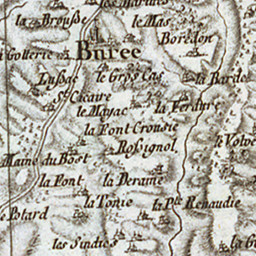 la Brousse
le Mas
Burée
Boredon
Gollerie
Lussac
le Gros Cas
la Barde
St. Cicaire
le Mayac
la Verdure
la Font Crousie
Rossignol
le Volve
Maine du Bost
la Font
la Deraine
la Tonie
la Pte. Renaudie
Potard
les Sindies